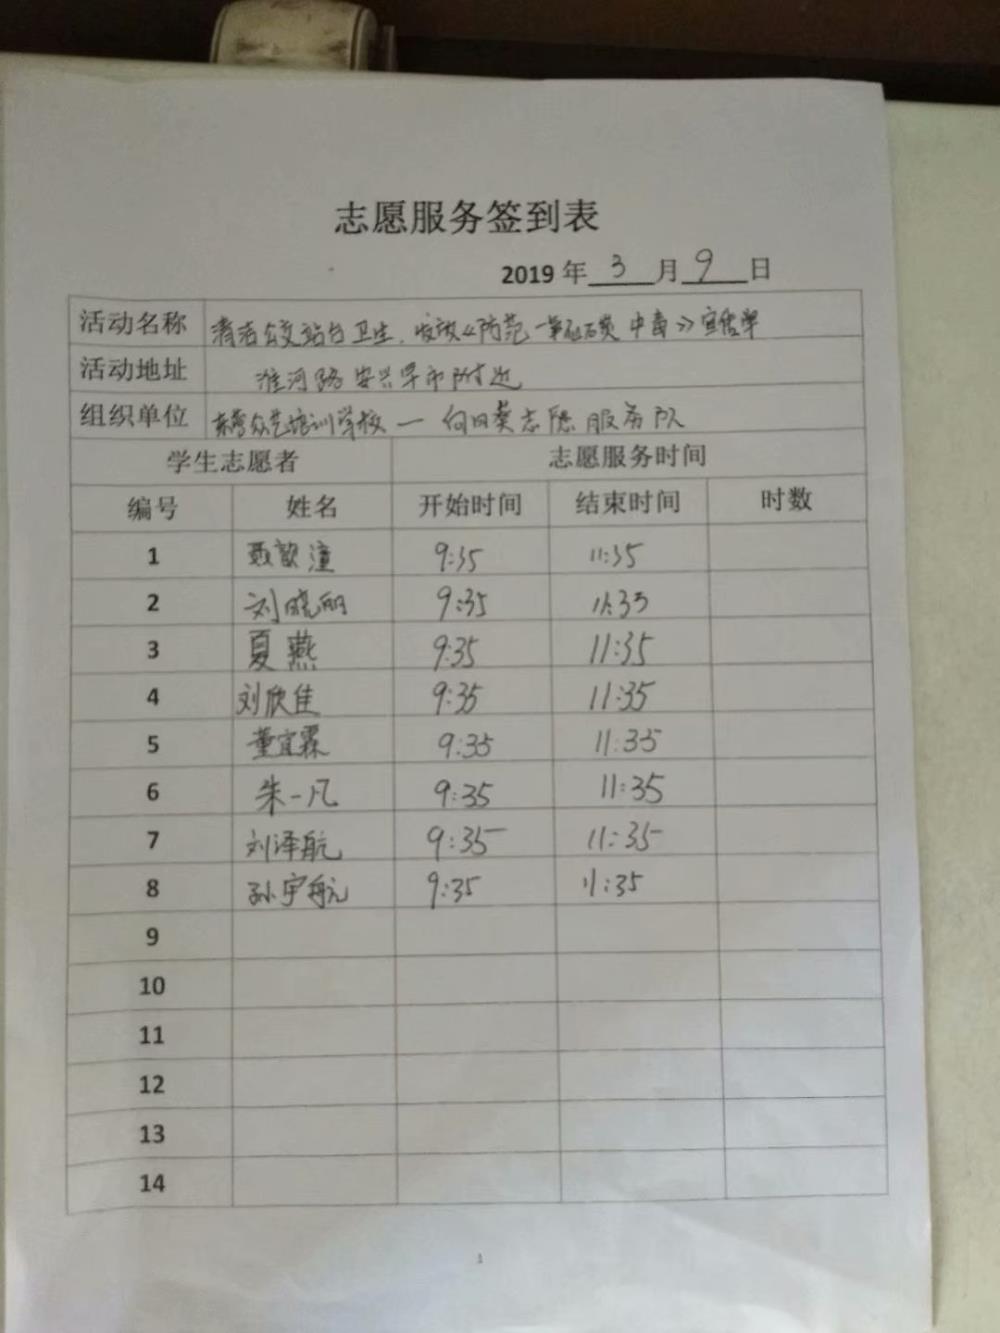 志愿服务签到表
2019 年 3 月 9 日
活动名称 清洁公交站台卫生.发放《防范一氧化碳中毒》宣传单
活动地址 淮河路安兴早市附近
组织单位 东营众艺培训学校一向日葵志愿服务队
学生志愿者 志愿服务时间
编号 姓名 开始时间 结束时间 时数
1 聂歆潼 9:35 11:35
2 刘晓丽 9:35 11:35
3 夏燕 9:35 11:35
4 刘欣佳 9:35 11:35
5 董宜霖 9:35 11:35
6 朱一凡 9:35 11:35
7 刘泽航 9:35 11:35
8 孙宇航 9:35 11:35
9
10
11
12
13
14
1